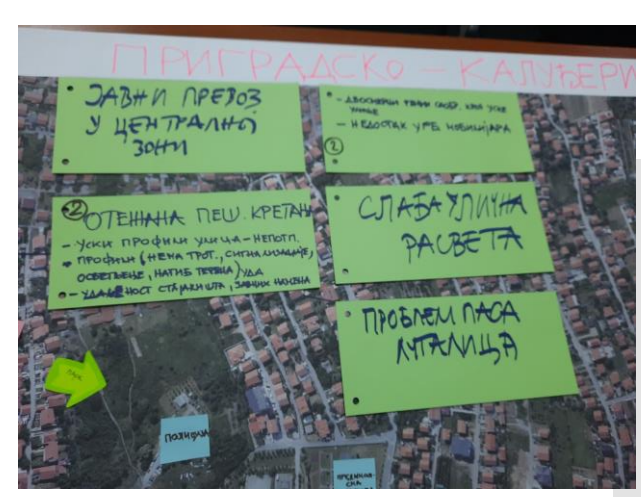 ПРИГРАДСКО – КАЛУЂЕРИ
ЈАВНИ ПРЕВОЗ
У ЦЕНТРАЛНОЈ
ЗОНИ
– ДВОСМЕРНИ
УЛИЦЕ
– НЕДОСТАК УРБ. МОБИЛИЈАРА
2
2 ОТЕЖАНА ПЕШ. КРЕТАЊА
– УСКИ ПРОФИЛИ УЛИЦА – НЕПОТП.
ПРОФИЛИ (НЕМА ТРОТ., СИГНАЛИЗАЦИЈЕ,
ОСВЕТЉЕЊЕ, НАГИБ ТЕРЕНА)
– УДАЉЕНОСТ СТАЈАЛИШТА, ЈАВНИХ НАМЕНА
СЛАБА УЛИЧНА
РАСВЕТА
ПРОБЛЕМ ПАСА
ЛУТАЛИЦА